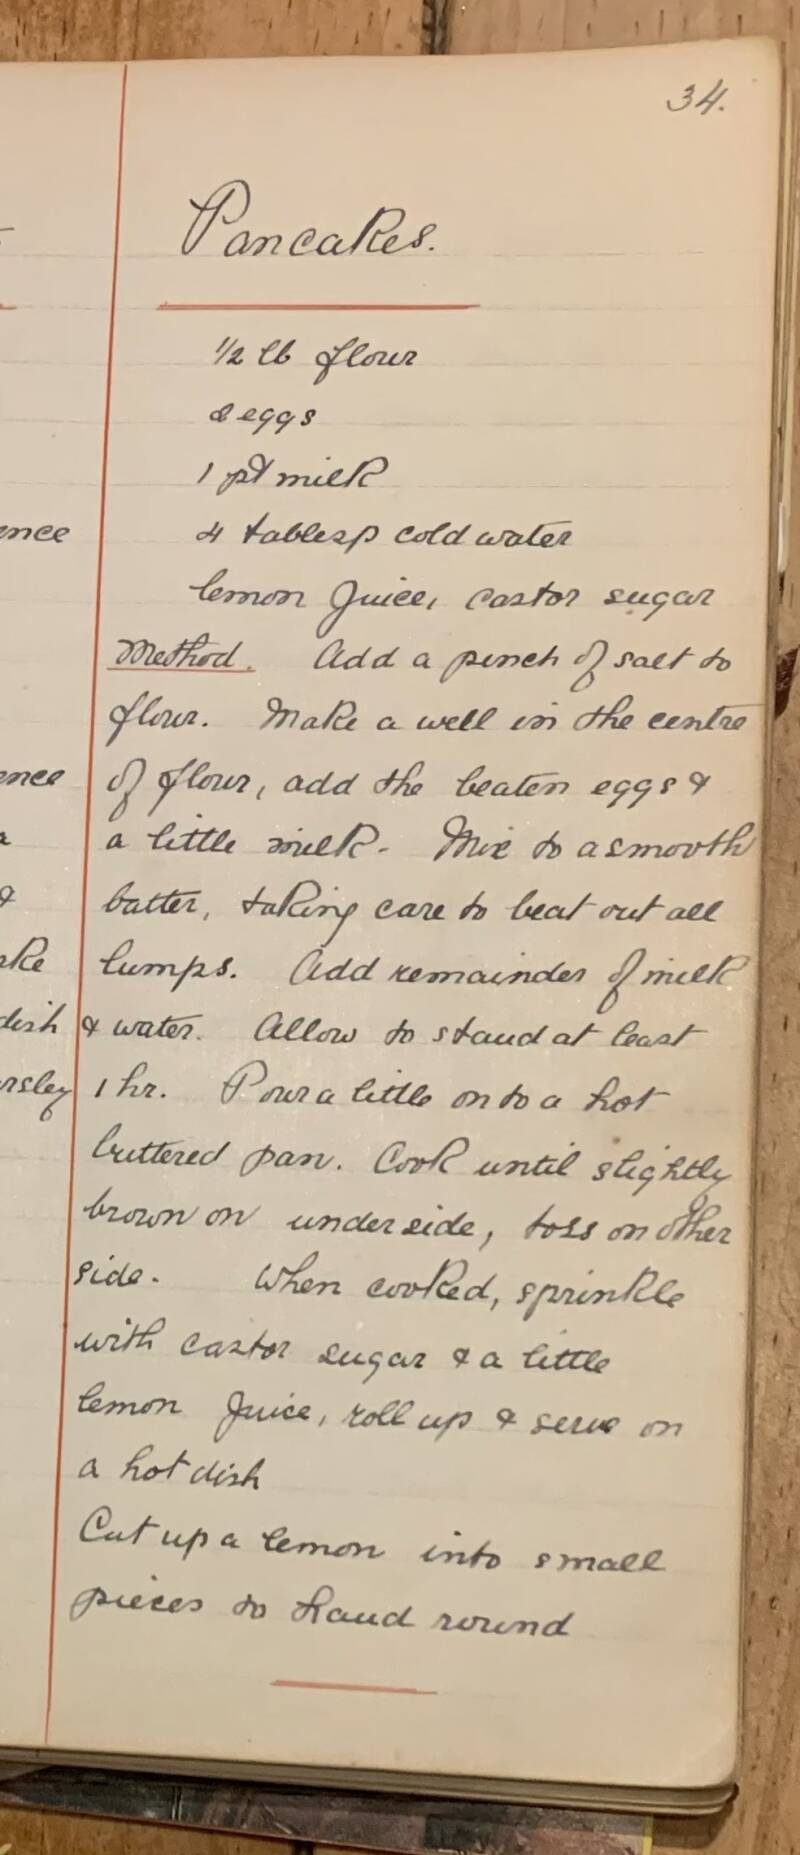 34.
Pancakes.
1/2 lb flour
2 eggs
1 pt milk
4 tablesp cold water
lemon juice, castor sugar
Method. Add a pinch of salt to
flour. Make a well in the centre
of flour, add the beaten eggs &
a little milk. Mix to a smooth
batter, taking care to beat out all
lumps. Add remainder of milk
& water. Allow to stand at least
1 hr. Pour a little on to a hot
buttered pan. Cook until slightly
brown on underside, toss on other
side. When cooked, sprinkle
with castor sugar & a little
lemon juice, roll up & serve on
a hot dish
Cut up a lemon into small
pieces to hand round